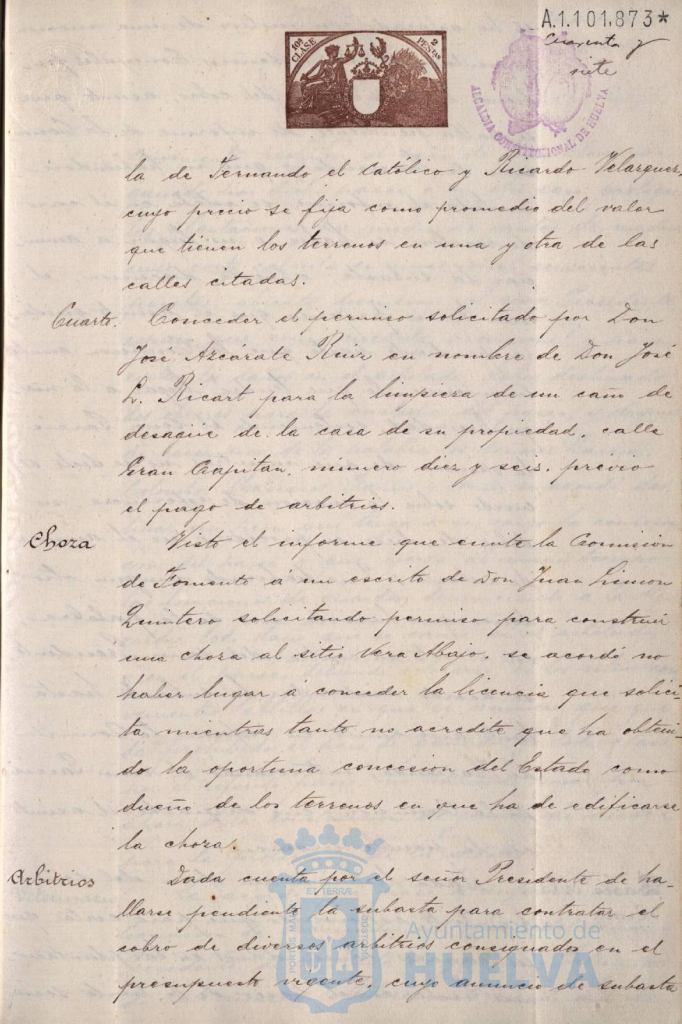 A.1.101.873*
10ª CLASE
2 PESETAS
Cuarenta y
siete
ALCALDIA CONSTITUCIONAL DE HUELVA
la de Fernando el Católico y Ricardo Velazquez,
cuyo precio se fija como promedio del valor
que tienen los terrenos en una y otra de las
calles citadas.
Cuarto. Conceder el permiso solicitado por Don
José Azcárate Ruiz en nombre de Don José
L. Ricart para la limpieza de un caño de
desagüe de la casa de su propiedad, calle
Gran Capitan, número diez y seis, previo
el pago de arbitrios.
Choza Visto el informe que emite la Comisión
de Fomento á un escrito de Don Juan Limon
Quintero solicitando permiso para construir
una choza al sitio Vera Abajo, se acordó no
haber lugar á conceder la licencia que solici-
ta mientras tanto no acredite que ha obteni-
do la oportuna concesion del Estado como
dueño de los terrenos en que ha de edificarse
la choza.
Arbitrios Dada cuenta por el señor Presidente de ha-
llarse pendiente la subasta para contratar el
cobro de diversos arbitrios consignados en el
presupuesto vigente, cuyo anuncio de subasta
Ayuntamiento de
HUELVA